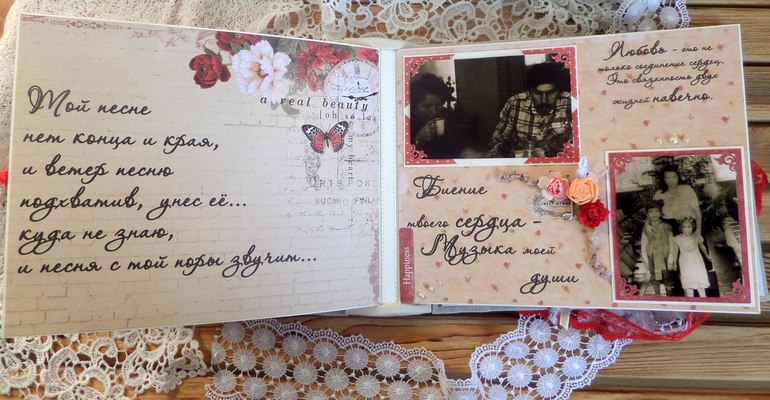 Той песне
нет конца и края,
и ветер песню
подхватив, унес её...
куда не знаю,
и песня с той поры звучит...
a real beauty
my heart
SUOMI FINLAN
Любовь - это не
только соединение сердец.
Это связанность двух
жизней навечно.
Биение
твоего сердца -
Музыка моей
души
Happiness